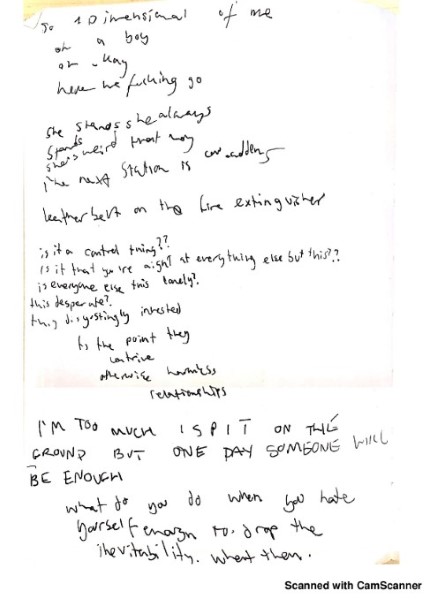 so 1 Dimensional of me
oh a boy
oh okay
here we fucking go
she stands she always
stands
she's weird that way
The next station is
leather belt on the fire extinguisher
is it a control thing??
Is it that you're alright at everything else but this??
is everyone else this lonely?
this desperate?
this disgustingly invested
to the point they
contrive
otherwise harmless
relationships
I'M TOO MUCH I SPIT ON THE
GROUND BUT ONE DAY SOMEONE WILL
BE ENOUGH
what do you do when you hate
yourself enough to drop the
inevitability. what then.
Scanned with CamScanner